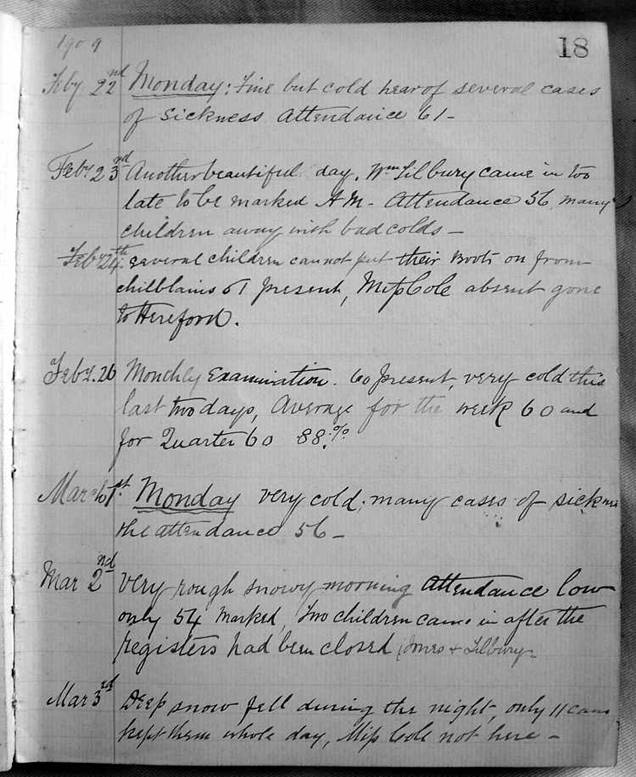 1909
18
Feby 22nd Monday: Fine but cold hear of several cases
of sickness Attendance 61 -
Feby. 23rd Another beautiful day. Wm Tilbury came in too
late to be marked A.M. - Attendance 56 many
children away with bad colds -
Feb 24th several children cannot put their Boots on from
chilblains 61 present, Miss Cole absent gone
to Hereford.
Feby. 26 Monthly Examination. 60 present, very cold this
last two days, Average for the week 60 and
for Quarter 60 88.%
March 1st Monday very cold; many cases of sickness
the attendance 56 -
Mar 2nd Very rough snowy morning Attendance low
only 54 marked, Two children came in after the
registers had been closed (Jones + Tilbury
Mar 3rd Deep snow fell during the night, only 11 came
kept them whole day, Miss Cole not here -